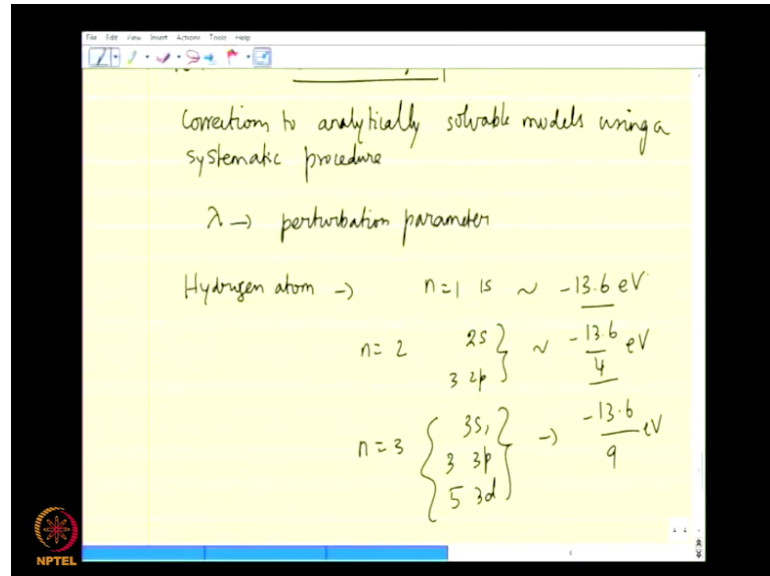 File Edit View Insert Actions Tools Help
Corrections to analytically solvable models using a
systematic procedure
λ → perturbation parameter
Hydrogen atom → n=1 1s ~ -13.6 eV
n=2 2s } ~ -13.6/4 eV
3 2p
n=3 { 3s, } → -13.6/9 eV
3 3p
5 3d
NPTEL